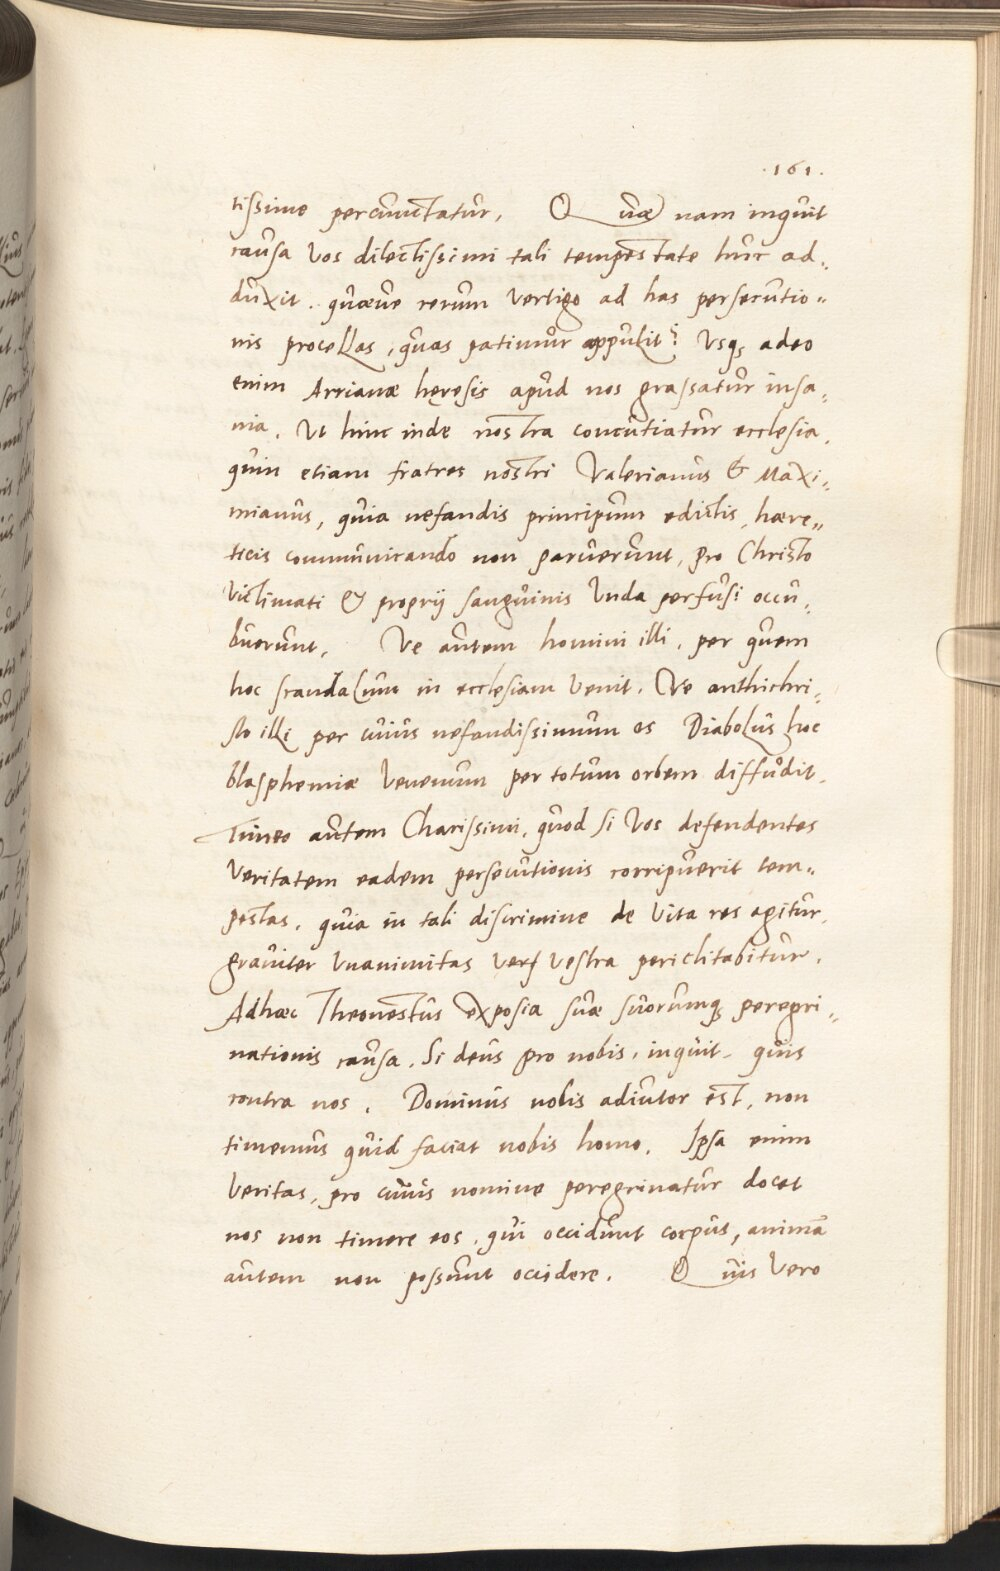 .161.
tissime percunctatur. Quae nam inquit
causa vos dilectissimi tali tempestate huc ad„
duxit. quaeve rerum vertigo ad has persecutio„
nis procellas, quas patimur appulit? Usq; adeo
enim Arrianae hęresis apud nos grassatur insa„
nia. Ut hinc inde nostra concutiatur ecclesia.
quin etiam fratres nostri Valerianus & Maxi„
mianus, quia nefandis principum edictis, haere„
ticis communicando non paruerunt, pro Christo
victimati & proprij sanguinis unda perfusi occu„
buerunt. Ve autem homini illi. per quem
hoc scandalum in ecclesiam venit. Ve anthichri„
sto illi per cuius nefandissimum os Diabolus hoc
blasphemiae venenum per totum orbem diffudit.
Timeo autem Charissimi, quod si vos defendentes
veritatem eadem persecutionis corripuerit tem„
pestas. quia in tali discrimine de vita res agitur,
graviter unanimitas vestra periclitabitur.
Adhaec Theonestus exposia suae suorumq; peregri„
nationis causa. Si deus pro nobis. inquit. quis
contra nos. Dominus nobis adiutor est, non
timemus quid faciat nobis homo. Ipsa enim
veritas, pro cuius nomine peregrinatur docet
nos non timere eos. qui occidunt corpus, animā
autem non possunt occidere. Quis vero